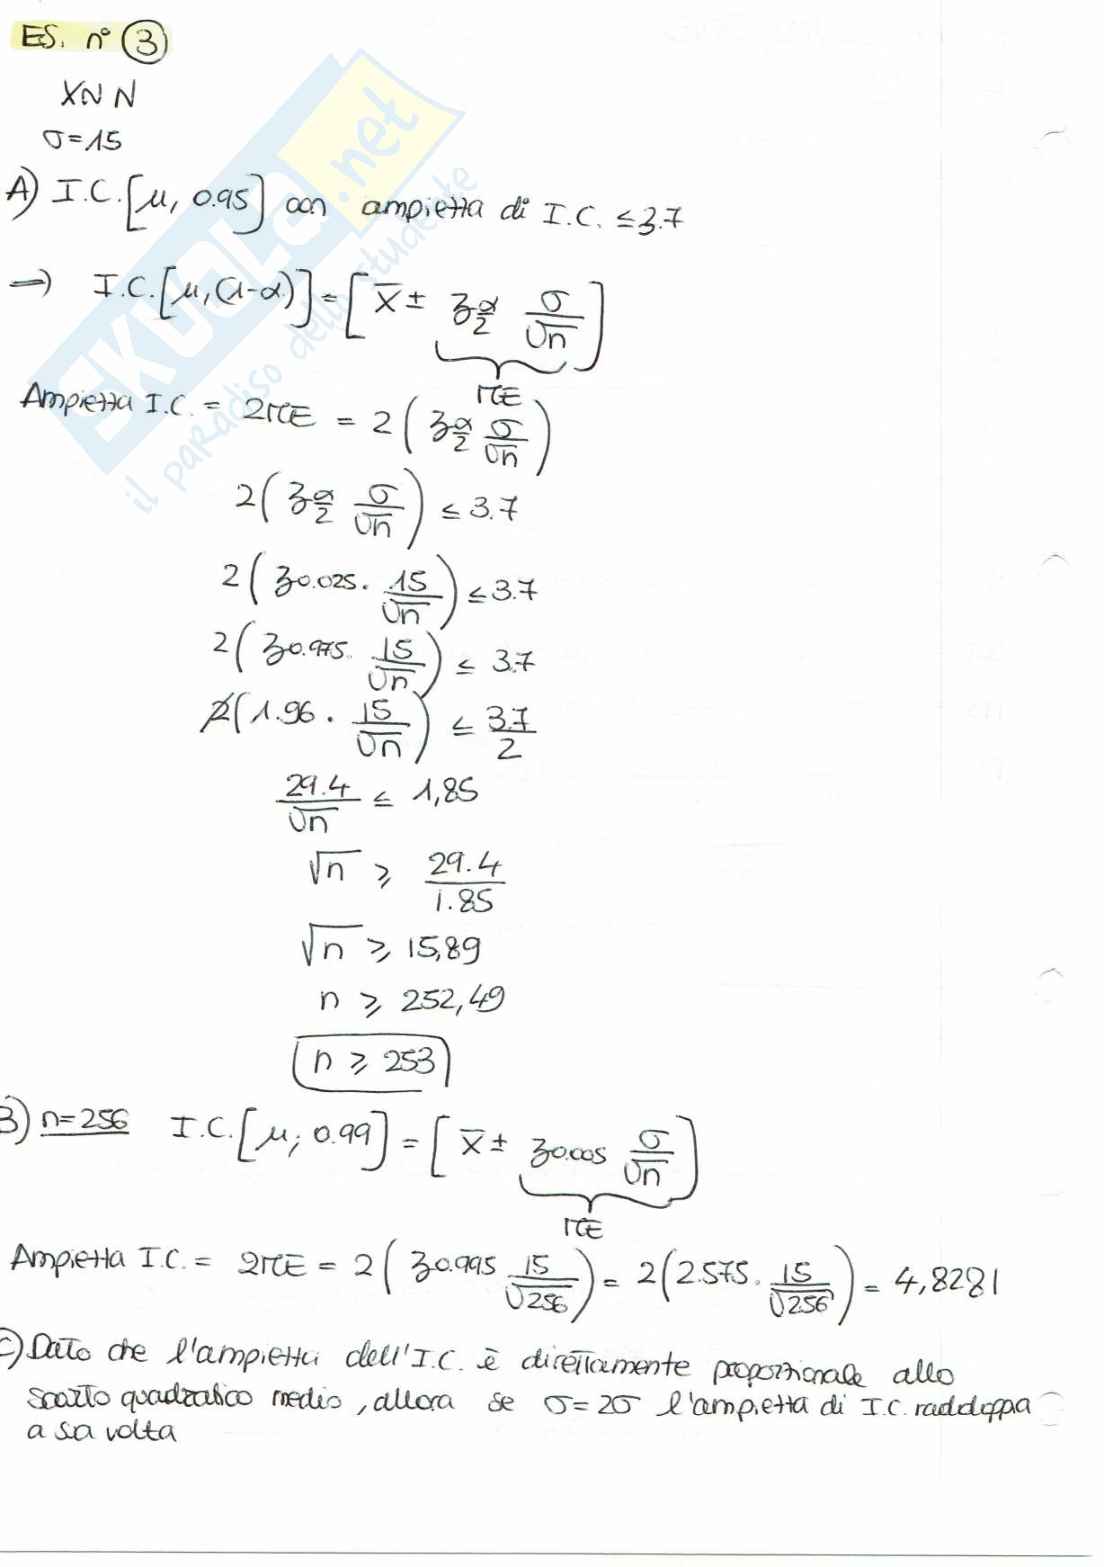 ES. n° 3
X~N
σ=15
A) I.C.[μ, 0.95] con ampietta di I.C. ≤3.7
⇒ I.C.[μ,(1-α)]=[X̄ ± z α/2 σ/√n]
ME
Ampietta I.C. = 2ME = 2(z α/2 σ/√n)
2(z α/2 σ/√n) ≤ 3.7
2(z0.025 · 15/√n) ≤ 3.7
2(z0.975 · 15/√n) ≤ 3.7
2(1.96 · 15/√n) ≤ 3.7/2
29.4/√n ≤ 1,85
√n ≥ 29.4/1.85
√n ≥ 15,89
n ≥ 252,49
n ≥ 253
B) n=256 I.C.[μ; 0.99] = [X̄ ± z0.005 σ/√n]
ME
Ampietta I.C. = 2ME = 2(z0.995 15/√256) = 2(2.575 · 15/√256) = 4,8281
C) Dato che l'ampietta dell'I.C. è direttamente proporzionale allo
scarto quadratico medio, allora se σ=2σ l'ampietta di I.C. raddoppia
a sua volta
SKUOLA.net
il paradiso dello studente